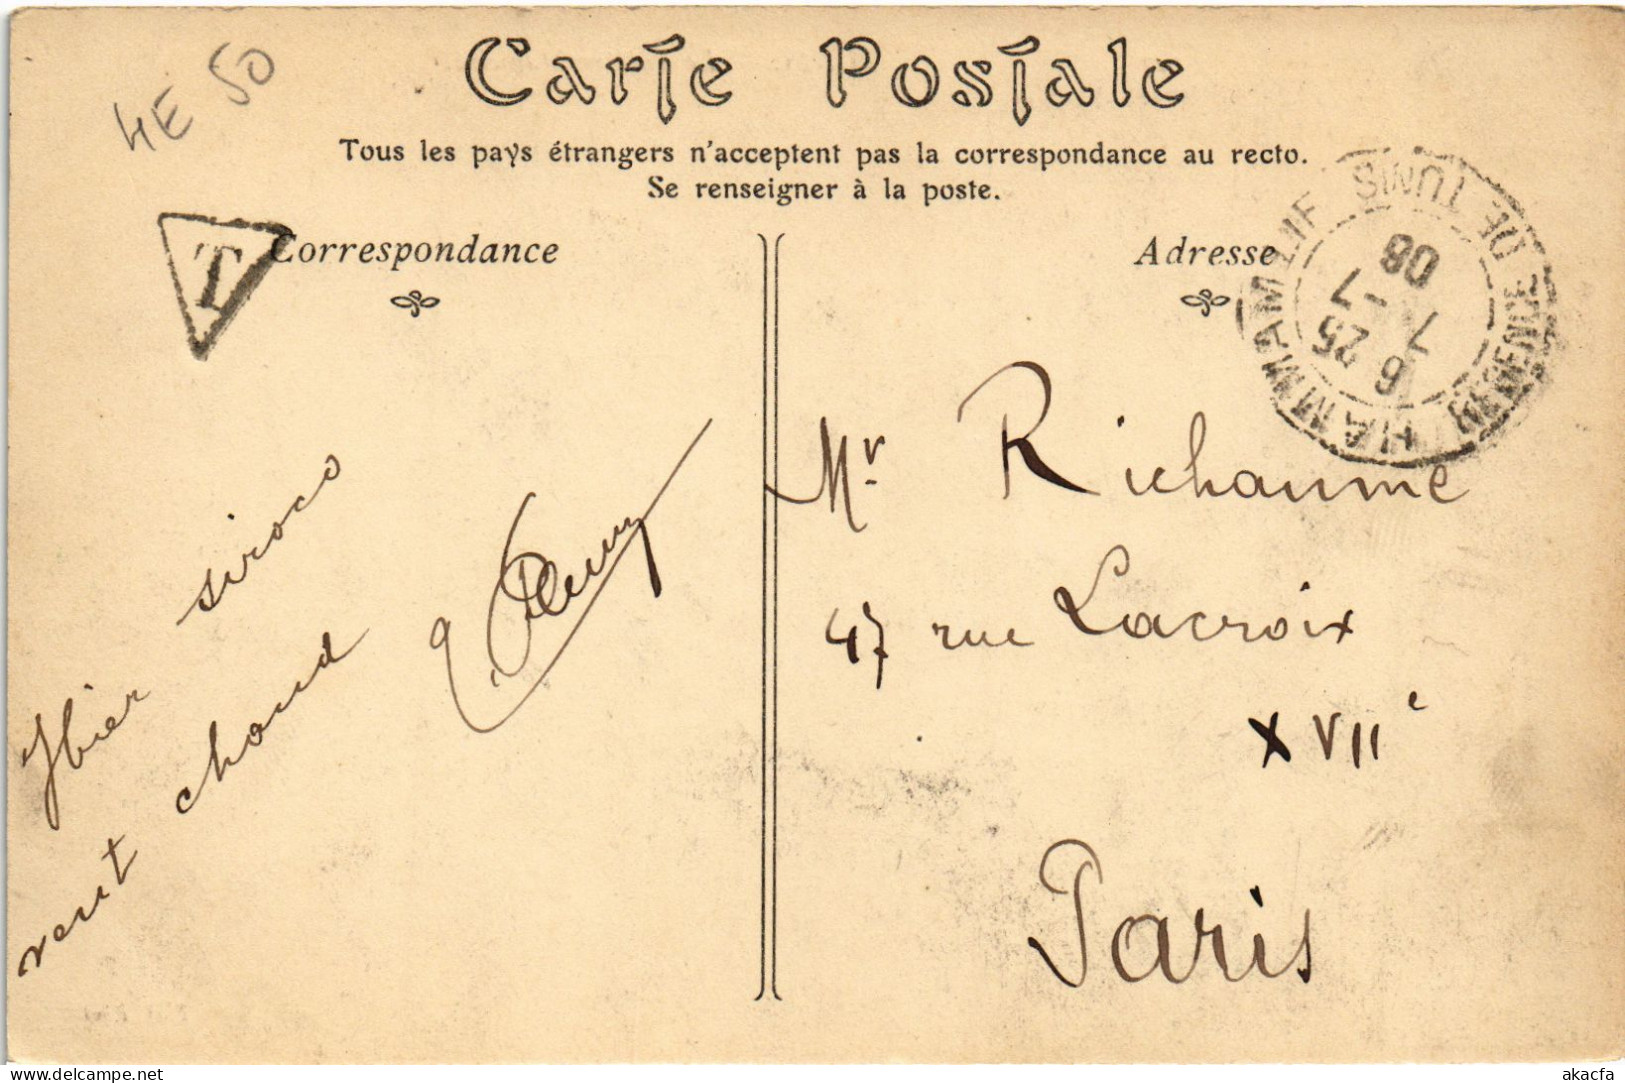 4E 50
Carte Postale
Tous les pays étrangers n'acceptent pas la correspondance au recto.
Se renseigner à la poste.
T
Correspondance
Adresse
HAMMAM-LIF RÉGENCE DE TUNIS
6 25
7 -7
08
Hier siroco
vent chaud
Mr Richaume
47 rue Lacroix
XVIIe
Paris
delcampe.net
akacfa